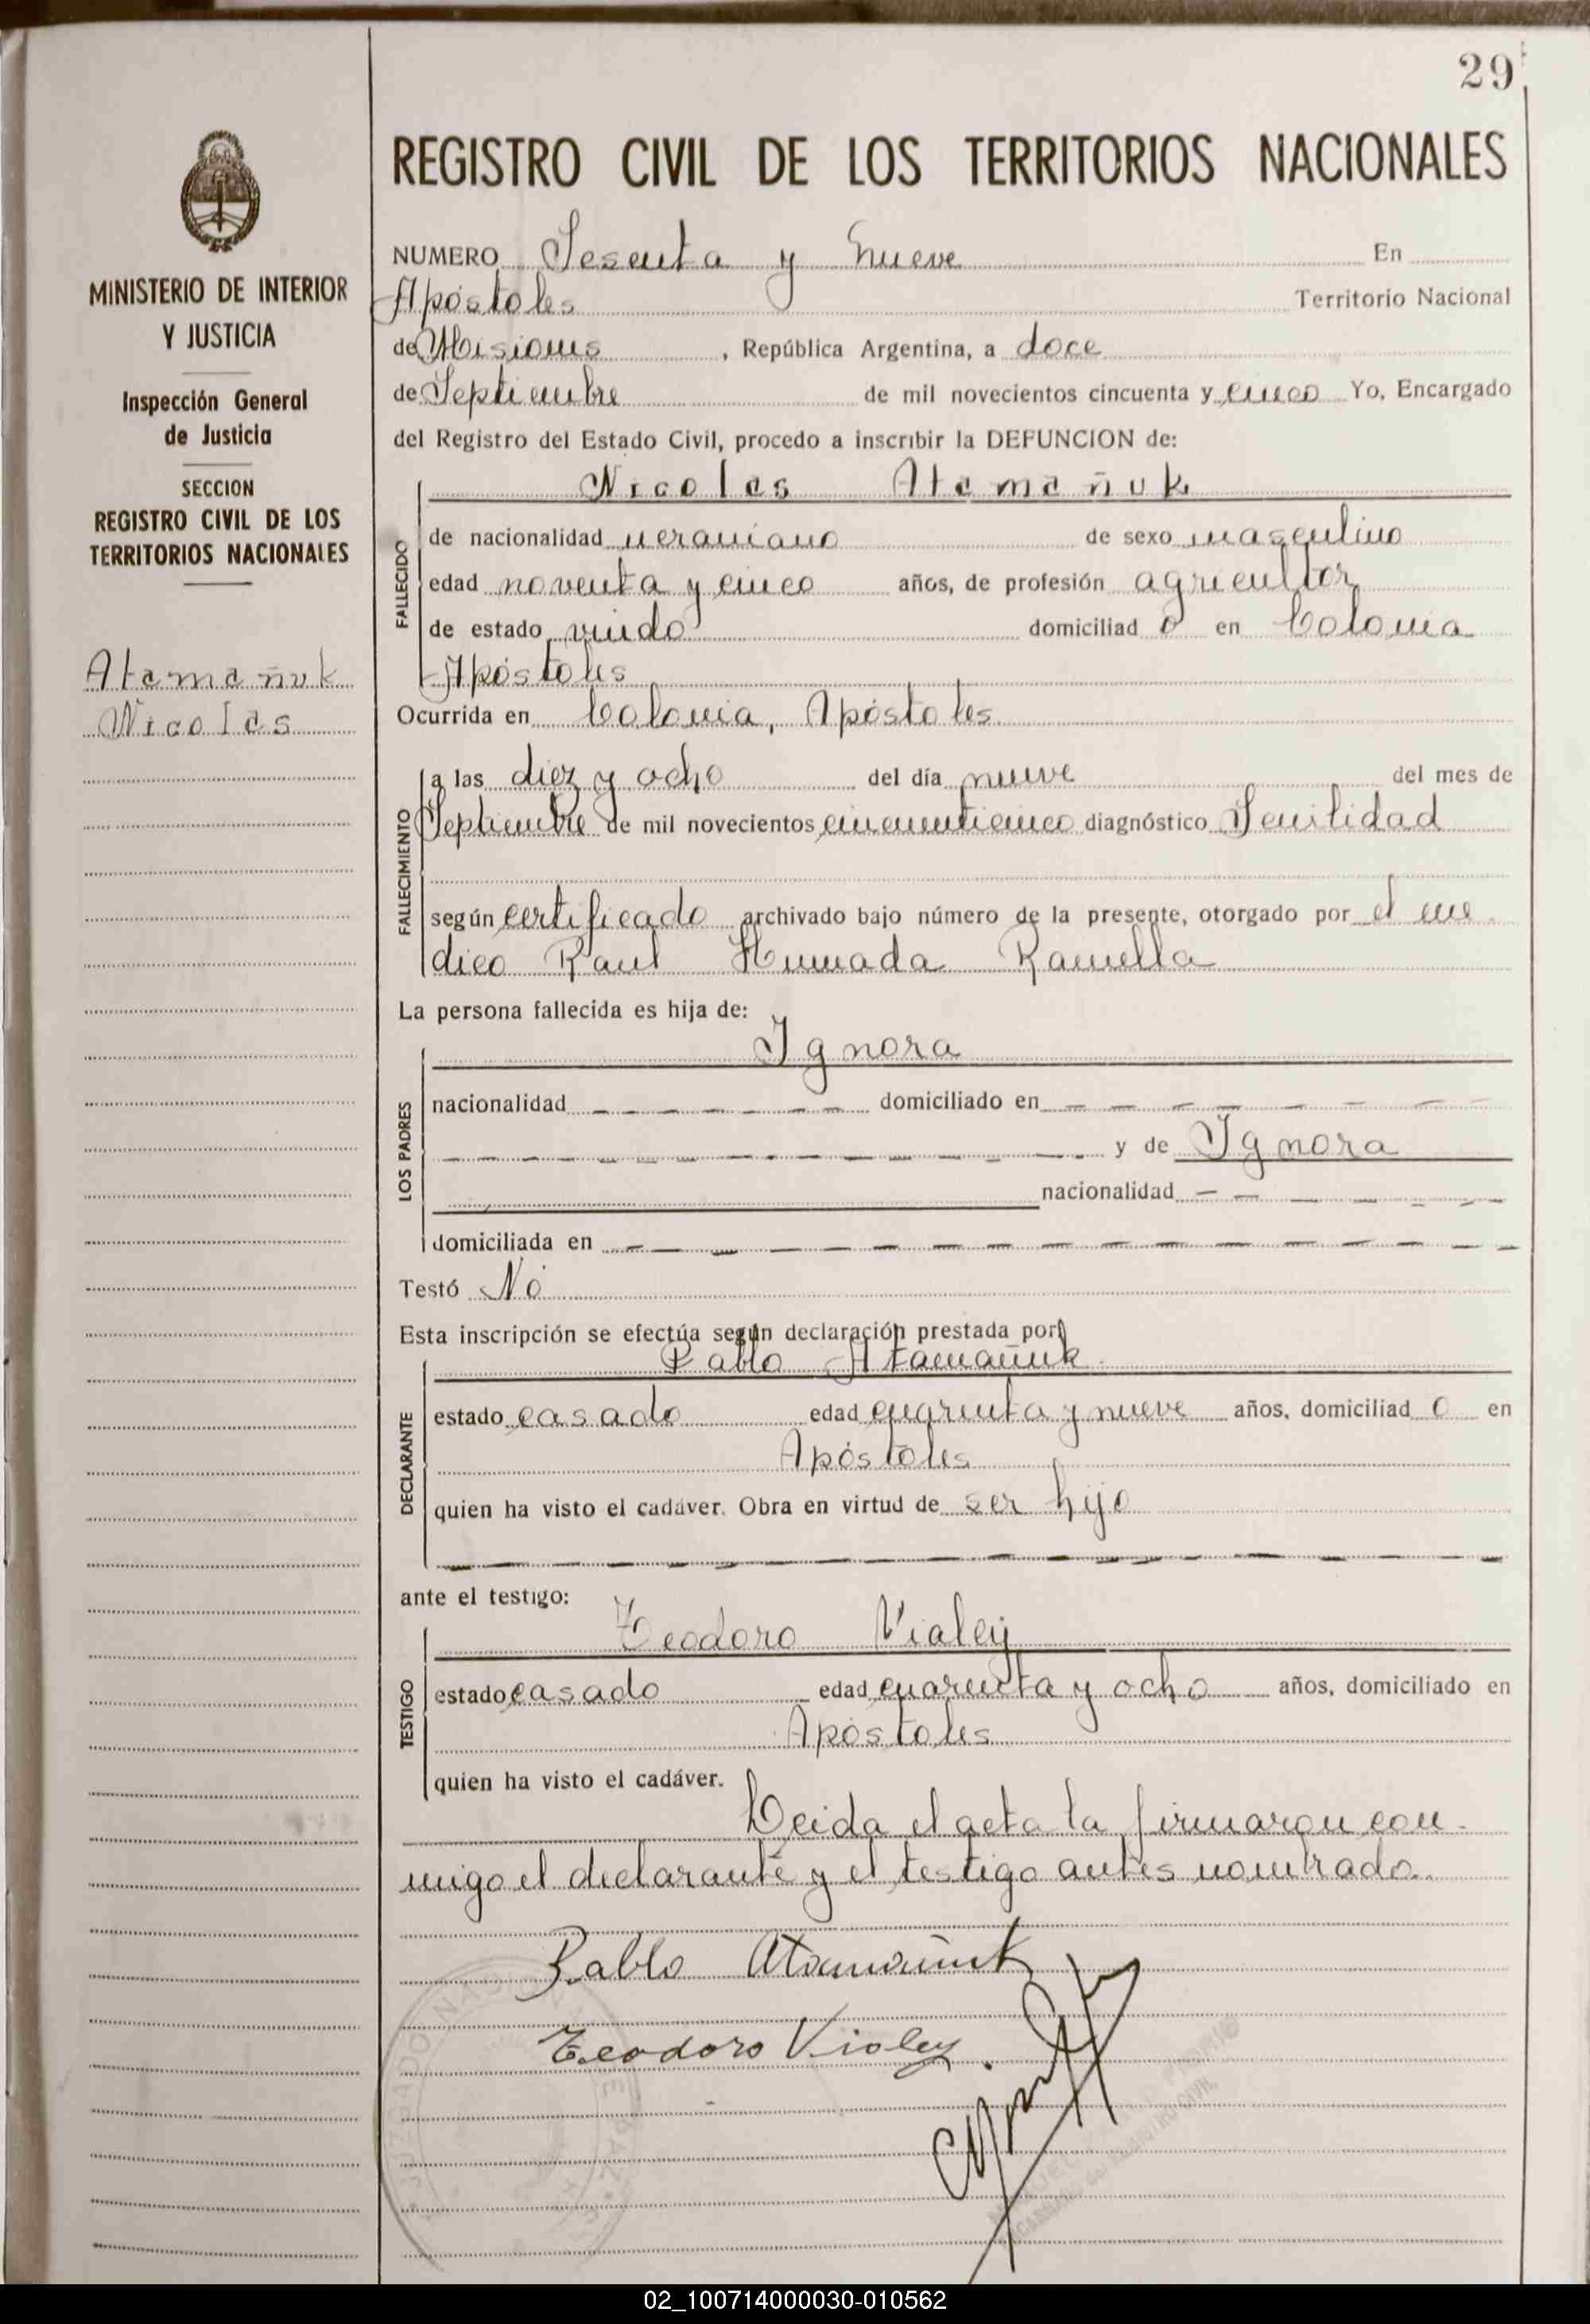 29
REGISTRO CIVIL DE LOS TERRITORIOS NACIONALES
MINISTERIO DE INTERIOR
Y JUSTICIA
Inspección General
de Justicia
SECCION
REGISTRO CIVIL DE LOS
TERRITORIOS NACIONALES
Atamañuk
Nicolas
NUMERO Sesenta y nueve En
Apóstoles Territorio Nacional
de Misiones, República Argentina, a doce
de Septiembre de mil novecientos cincuenta y cinco Yo, Encargado
del Registro del Estado Civil, procedo a inscribir la DEFUNCION de:
Nicolas Atamañuk
FALLECIDO
de nacionalidad ucraniano de sexo masculino
edad noventa y cinco años, de profesión agricultor
de estado viudo domiciliad o en Colonia
Apóstoles
Ocurrida en Colonia, Apóstoles
FALLECIMIENTO
a las diez y ocho del día nueve del mes de
Septiembre de mil novecientos cincuenticinco diagnóstico Senilidad
según certificado archivado bajo número de la presente, otorgado por el me
dico Raul Humada Ramella
La persona fallecida es hija de:
LOS PADRES
Ignora
nacionalidad - - - - - domiciliado en - - - - - - - -
- - - - - - - - - - - y de Ignora
nacionalidad - - - - - -
domiciliada en - - - - - - - - - - - - - - - -
Testó No
Esta inscripción se efectúa según declaración prestada por
DECLARANTE
Pablo Atamañuk
estado casado edad cuarenta y nueve años, domiciliad o en
Apóstoles
quien ha visto el cadáver. Obra en virtud de ser hijo
- - - - - - - - - - - - - - - - - -
ante el testigo:
TESTIGO
Teodoro Vialey
estado casado edad cuarenta y ocho años, domiciliado en
Apóstoles
quien ha visto el cadáver.
Leida el acta la firmaron con-
migo el declarante y el testigo antes nombrado.
Pablo Atamañuk
Teodoro Vialey
02_100714000030-010562